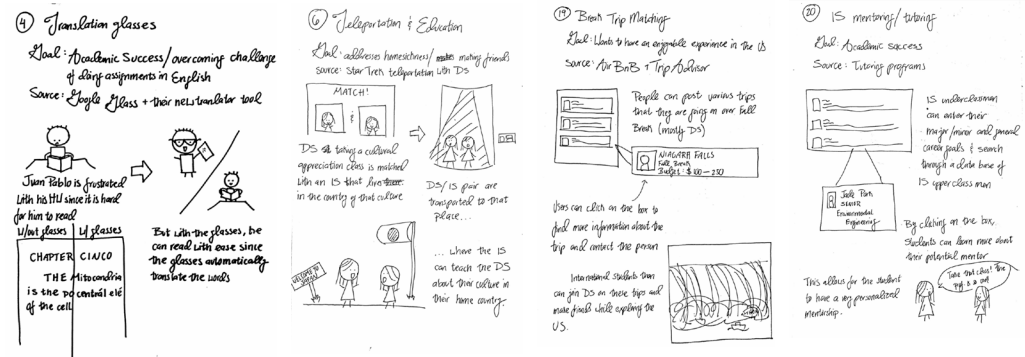 4 Translation glasses
Goal: Academic Success/overcoming challenge
of doing assignments in English
Source: Google Glass + their new translator tool
Juan Pablo is frustrated
with his HW since it is hard
for him to read
w/out glasses w/ glasses
CHAPTER CINCO
THE Mitocondria
is the po centrál elé
of the cell
But with the glasses, he
can read with ease since
the glasses automatically
translate the words
6 Teleportation & Education
Goal: addresses homesickness/ making friends
Source: Star Trek teleportation with DS
MATCH!
&
DS taking a cultural
appreciation class is matched
with an IS that lives
in the country of that culture
DS/IS pair are
transported to that
place...
WELCOME TO
... where the IS
can teach the DS
about their culture in
their home country
19 Break Trip Matching
Goal: Wants to have an enjoyable experience in the US
Source: Air BnB + Trip Advisor
People can post various trips
that they are going on over Fall
Break (mostly DS)
NIAGARA FALLS
Fall Break
Budget: $100-250
Users can click on the box to
find more information about the
trip and contact the person
International Students then
can join DS on these trips and
make friends while exploring the
US.
20 IS mentoring/tutoring
Goal: Academic success
Source: Tutoring programs
IS underclassman
can enter their
major/minor and general
career goals & search
through a data base of
IS upperclassman
Jade Park
SENIOR
Environmental
Engineering
By clicking on the box,
Students can learn more about
their potential mentor
This allows for the student
to have a very personalized
mentorship.
Take that class! the
prof is a